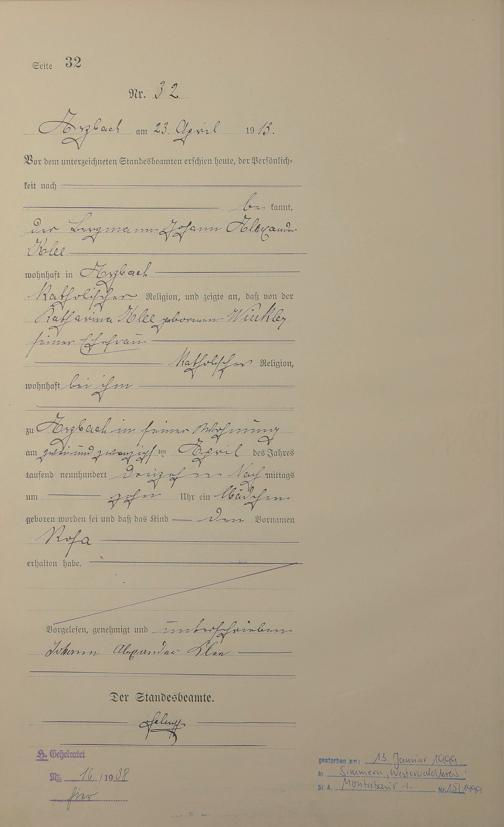 Seite 32
Nr. 32
Arzbach am 23. April 1913.
Vor dem unterzeichneten Standesbeamten erschien heute, der Persönlich-
keit nach
be kannt,
der Bergmann Johann Alexander
Klee
wohnhaft in Arzbach
katholischer Religion, und zeigte an, daß von der
Katharina Klee geborenen
seiner Ehefrau
katholischer Religion,
wohnhaft bei ihm
zu Arzbach in seiner Wohnung
am zwei und zwanzigsten April des Jahres
tausend neunhundert dreizehn Nach mittags
um zehn Uhr ein Mädchen
geboren worden sei und daß das Kind den Vornamen
Rosa
erhalten habe.
Vorgelesen, genehmigt und unterschrieben
Johann Alexander Klee
Der Standesbeamte.
H. Geheiratet
Nr. 16/1938
hier
gestorben am: 13. Januar 1999
in Simmern, Westerwaldkreis
St. A. Montabaur